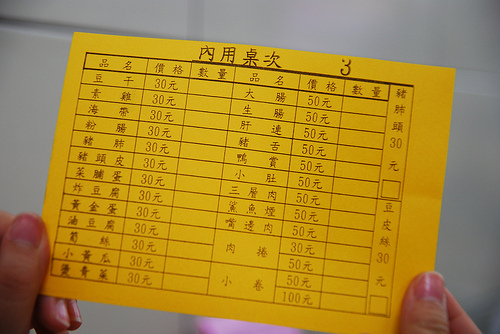 內用桌次 3
品名 價格 數量 品名 價格 數量
豆干 30元 大腸 50元
素雞 30元 生腸 50元
海帶 30元 肝連 50元
粉腸 30元 豬舌 50元
豬肺 30元 鴨賞 50元
豬頭皮 30元 小肚 50元
菜脯蛋 30元 三層肉 50元
炸豆腐 30元 鯊魚煙 50元
黃金蛋 30元 嘴邊肉 50元
油豆腐 30元 肉捲 30元
筍絲 30元 50元
小黃瓜 30元 小卷 50元
燙青菜 30元 100元
豬肺頭30元
豆皮絲30元